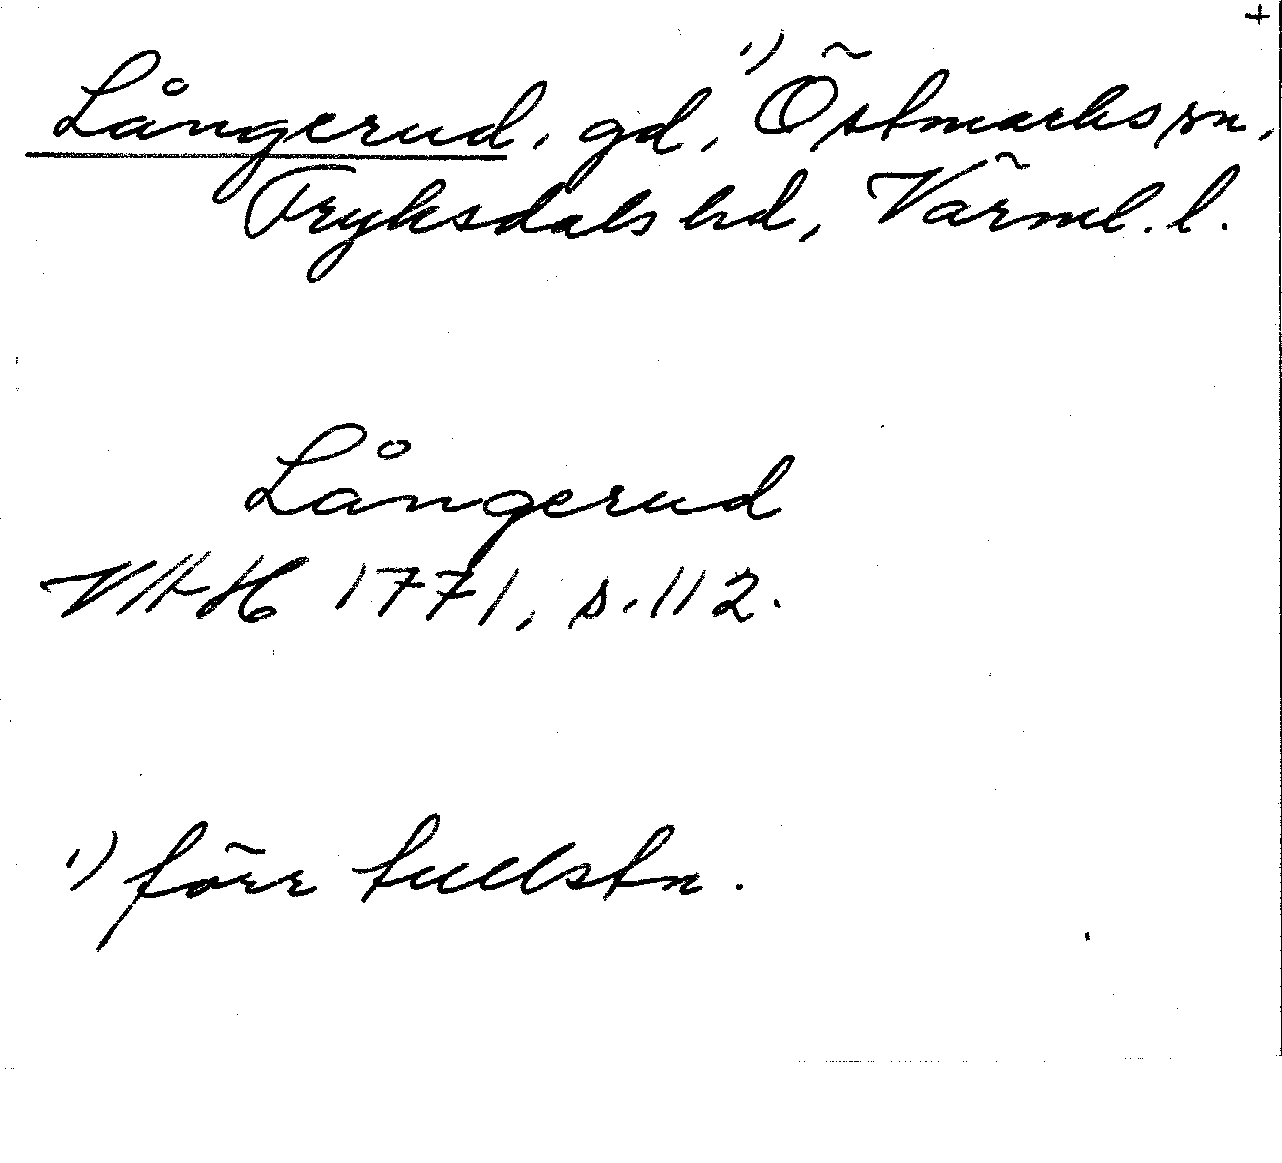 +
Långerud, gd,¹) Östmarks sn,
Fryksdals hd, Värml. l.
Långerud
VHH 1771, s. 112.
¹) förr tullstn.